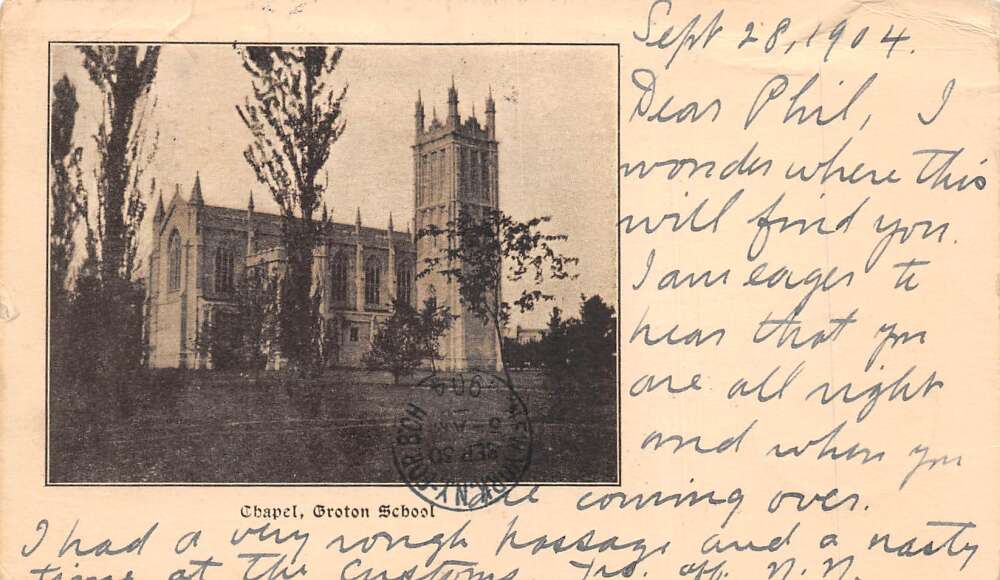 Sept 28, 1904.
Dear Phil, I
wonder where this
will find you.
I am eager to
hear that you
are all right
and when you
are coming over.
I had a very rough passage and a nasty
time at the Customs.
Chapel, Groton School
SEP 30
6-AM
1904